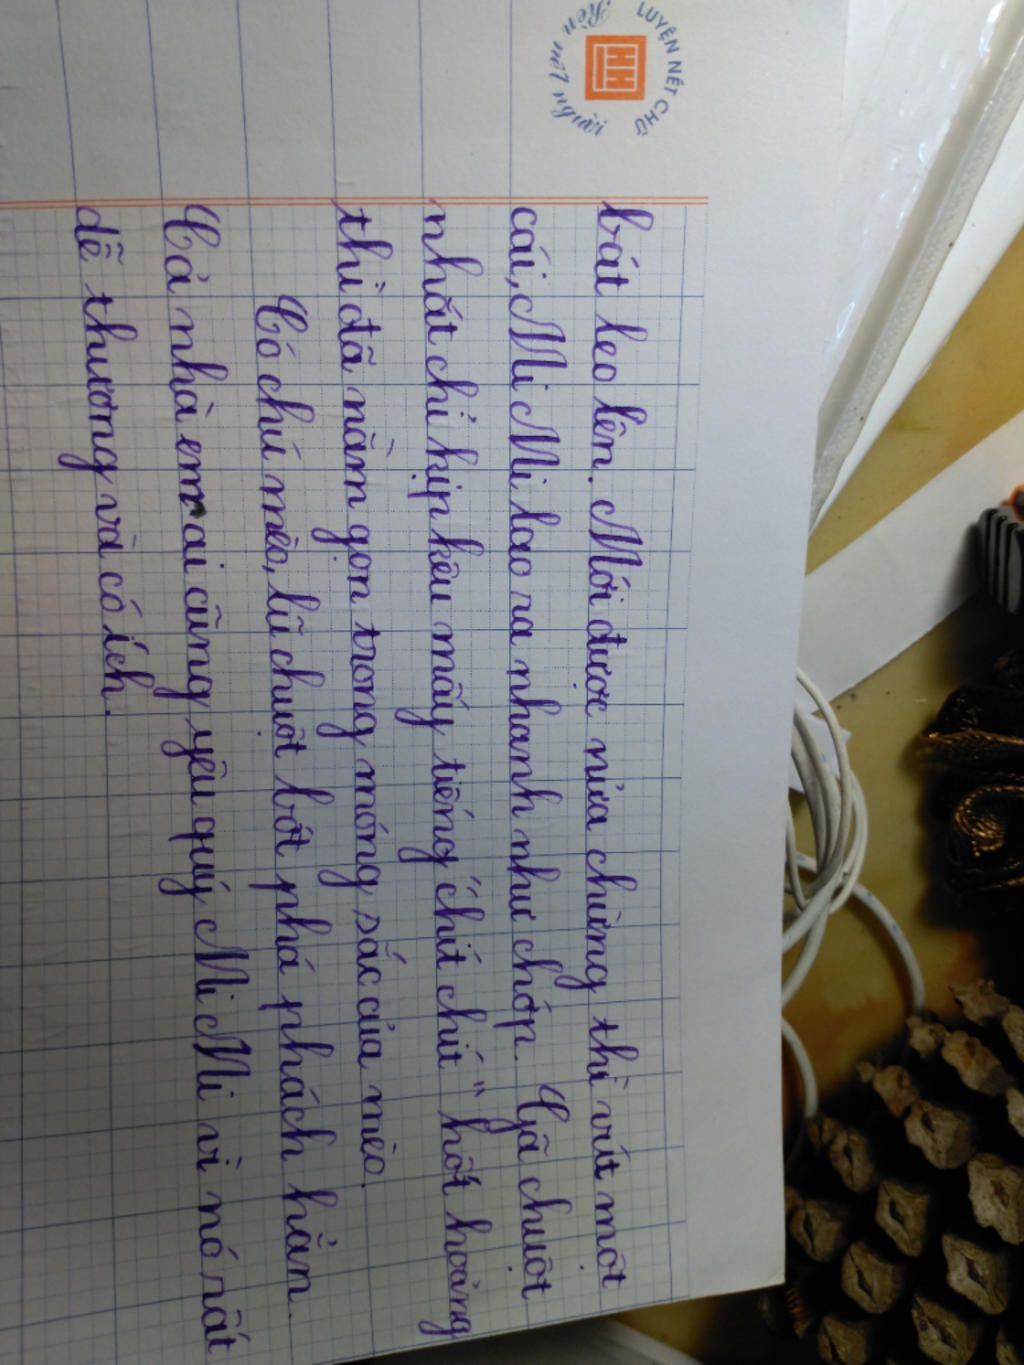 LUYỆN NÉT CHỮ
Rèn nết người
HH
bát leo lên. Mới được nửa chừng thì vút một
cái, Mi Mi lao ra nhanh như chớp. Gã chuột
nhắt chỉ kịp kêu mấy tiếng "chít chít" hốt hoảng
thì đã nằm gọn trong móng sắc của mèo.
Có chú mèo, lũ chuột bớt phá phách hẳn.
Cả nhà em ai cũng yêu quý Mi Mi vì nó rất
dễ thương và có ích.